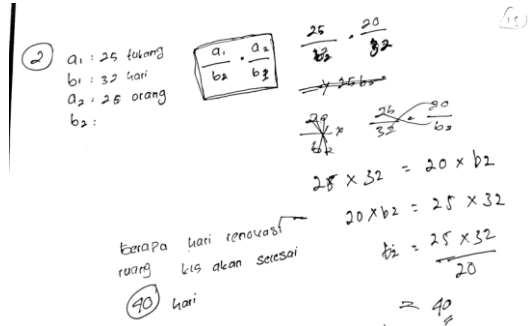 (15)
2
a₁ : 25 tukang
b₁ : 32 hari
a₂ : 25 orang
b₂ :
a₁/b₂ · a₂/b₂
25/b₂ · 20/32
25/32 = 20/b₂
25 × 32 = 20 × b2
20 × b2 = 25 × 32
b₂ = 25 × 32 / 20
= 40
berapa hari renovasi
ruang kls akan selesai
40 hari